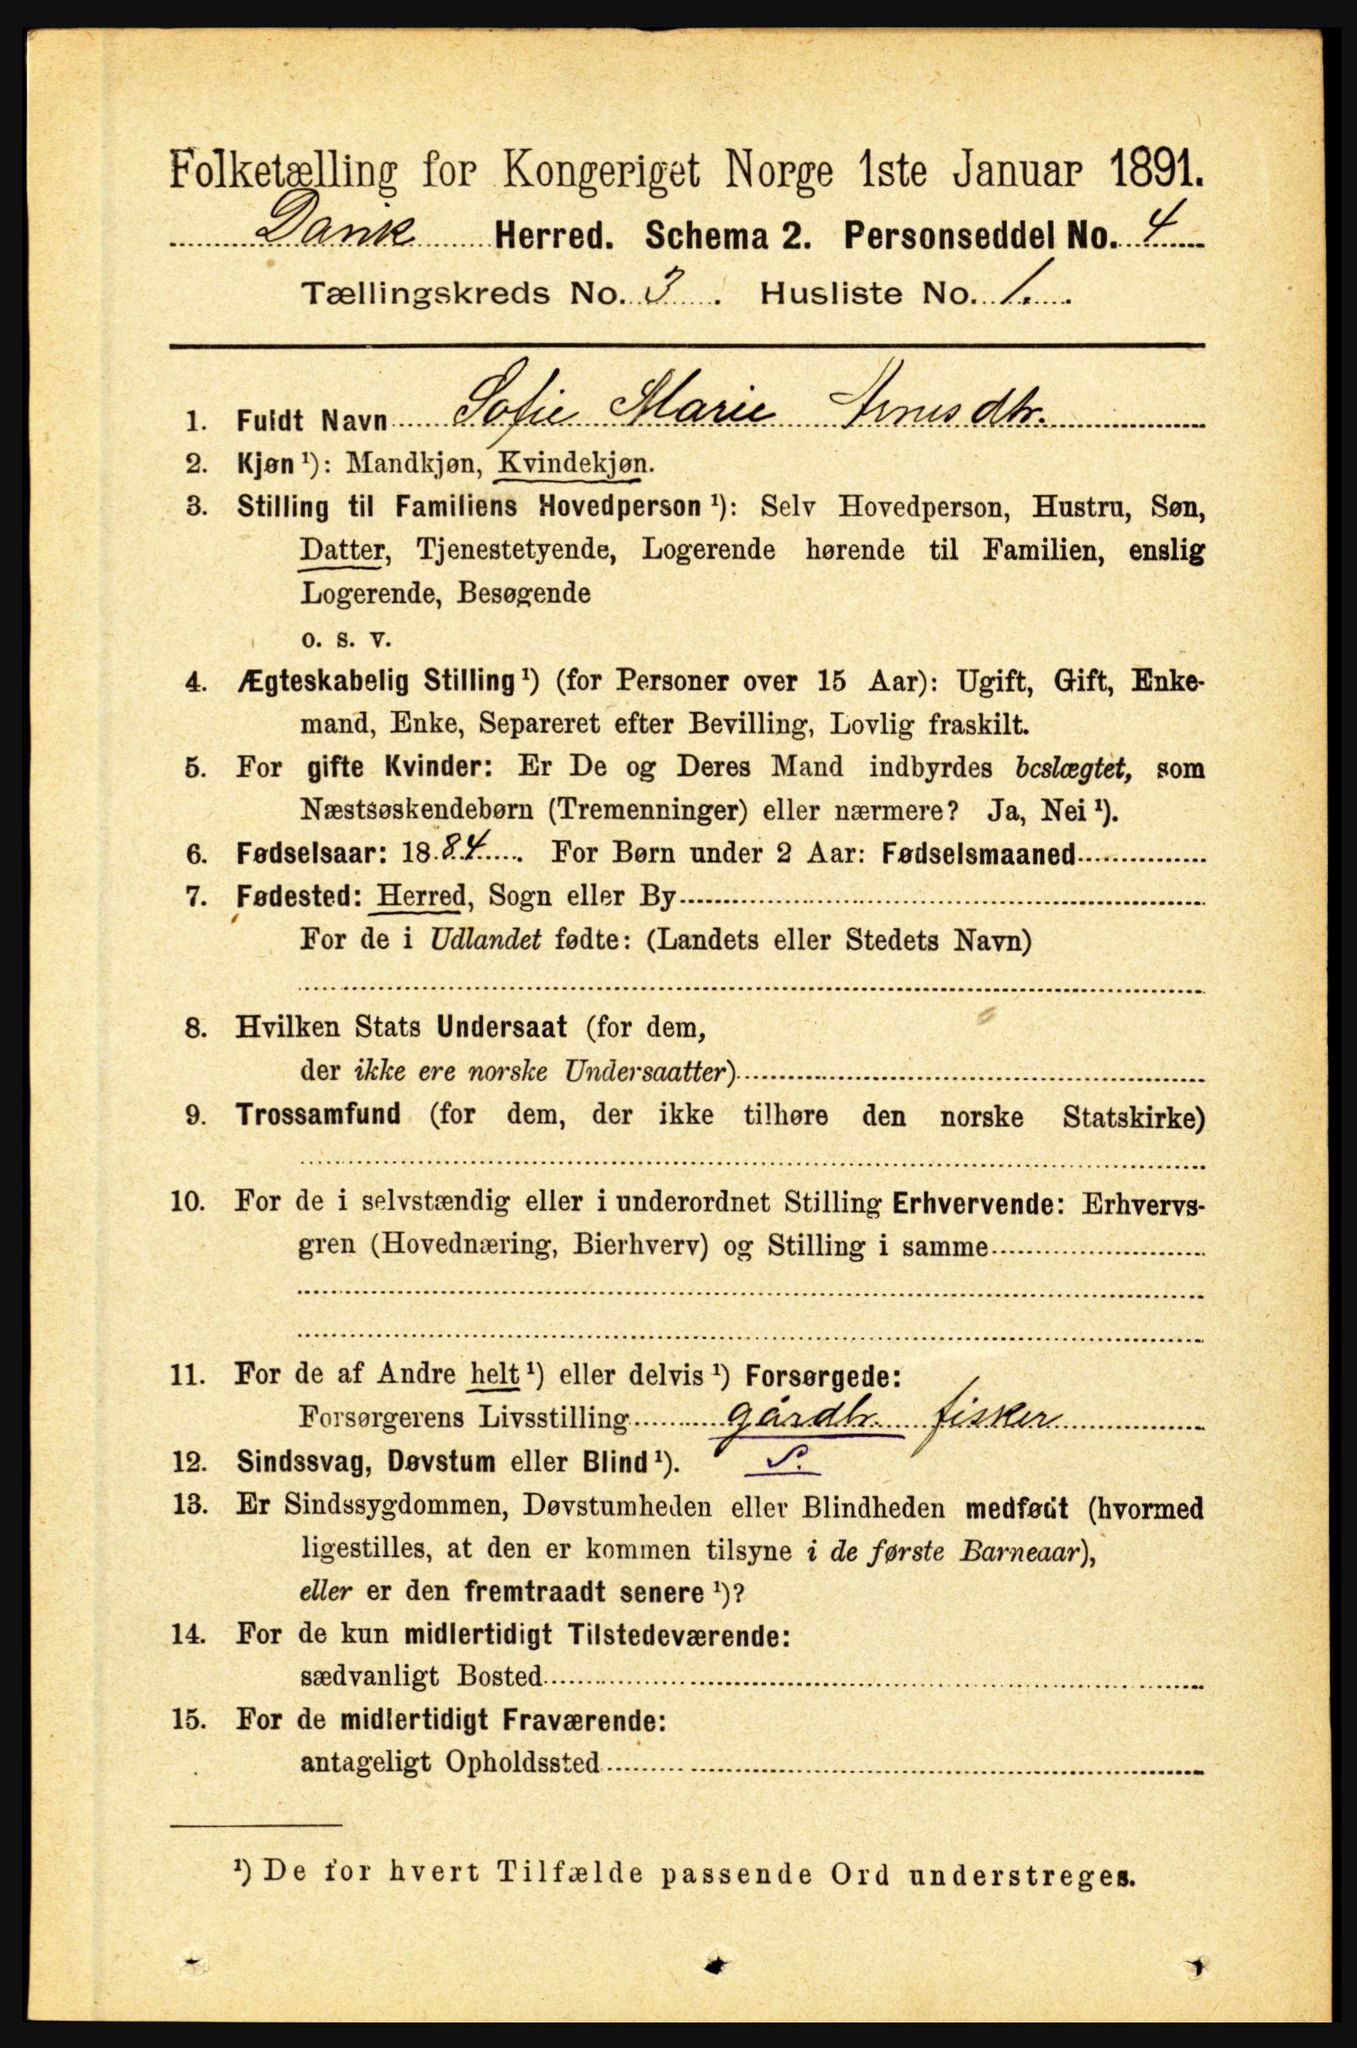 Folketælling for Kongeriget Norge 1ste Januar 1891.
Davik Herred. Schema 2. Personseddel No. 4
Tællingskreds No. 3. Husliste No. 1.
1. Fuldt Navn Sofie Marie Arnesdtr.
2. Kjøn ¹): Mandkjøn, Kvindekjøn.
3. Stilling til Familiens Hovedperson ¹): Selv Hovedperson, Hustru, Søn,
Datter, Tjenestetyende, Logerende hørende til Familien, enslig
Logerende, Besøgende
o. s. v.
4. Ægteskabelig Stilling ¹) (for Personer over 15 Aar): Ugift, Gift, Enke-
mand, Enke, Separeret efter Bevilling, Lovlig fraskilt.
5. For gifte Kvinder: Er De og Deres Mand indbyrdes beslægtet, som
Næstsøskendebørn (Tremenninger) eller nærmere? Ja, Nei ¹).
6. Fødselsaar: 1884. For Børn under 2 Aar: Fødselsmaaned
7. Fødested: Herred, Sogn eller By
For de i Udlandet fødte: (Landets eller Stedets Navn)
8. Hvilken Stats Undersaat (for dem,
der ikke ere norske Undersaatter)
9. Trossamfund (for dem, der ikke tilhøre den norske Statskirke)
10. For de i selvstændig eller i underordnet Stilling Erhvervende: Erhvervs-
gren (Hovednæring, Bierhverv) og Stilling i samme
11. For de af Andre helt ¹) eller delvis ¹) Forsørgede:
Forsørgerens Livsstilling gårdbr. fisker
12. Sindssvag, Døvstum eller Blind ¹). S.
13. Er Sindssygdommen, Døvstumheden eller Blindheden medfødt (hvormed
ligestilles, at den er kommen tilsyne i de første Barneaar),
eller er den fremtraadt senere ¹)?
14. For de kun midlertidigt Tilstedeværende:
sædvanligt Bosted
15. For de midlertidigt Fraværende:
antageligt Opholdssted
¹) De for hvert Tilfælde passende Ord understreges.